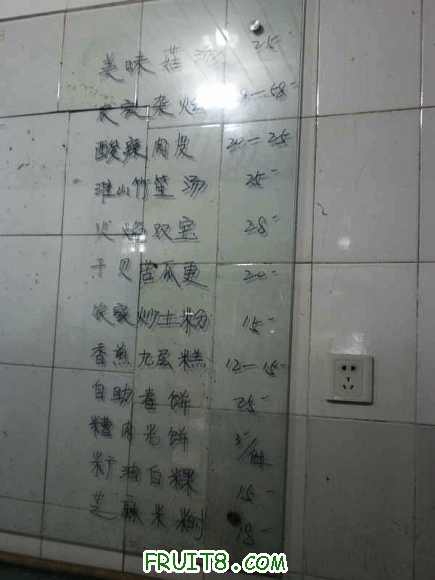 美味菇汤 25-
农家杂烩 8-58-
酸辣肉皮 20-25-
淮山竹笙汤 25-
火焰双宝 28-
干贝苦瓜更 20-
农家炒土粉 15-
香煎九层糕 12-15-
自助卷饼 25-
糟肉光饼 3-/
籽油白粿 15-
芝麻米粉 18-
FRUIT8.COM